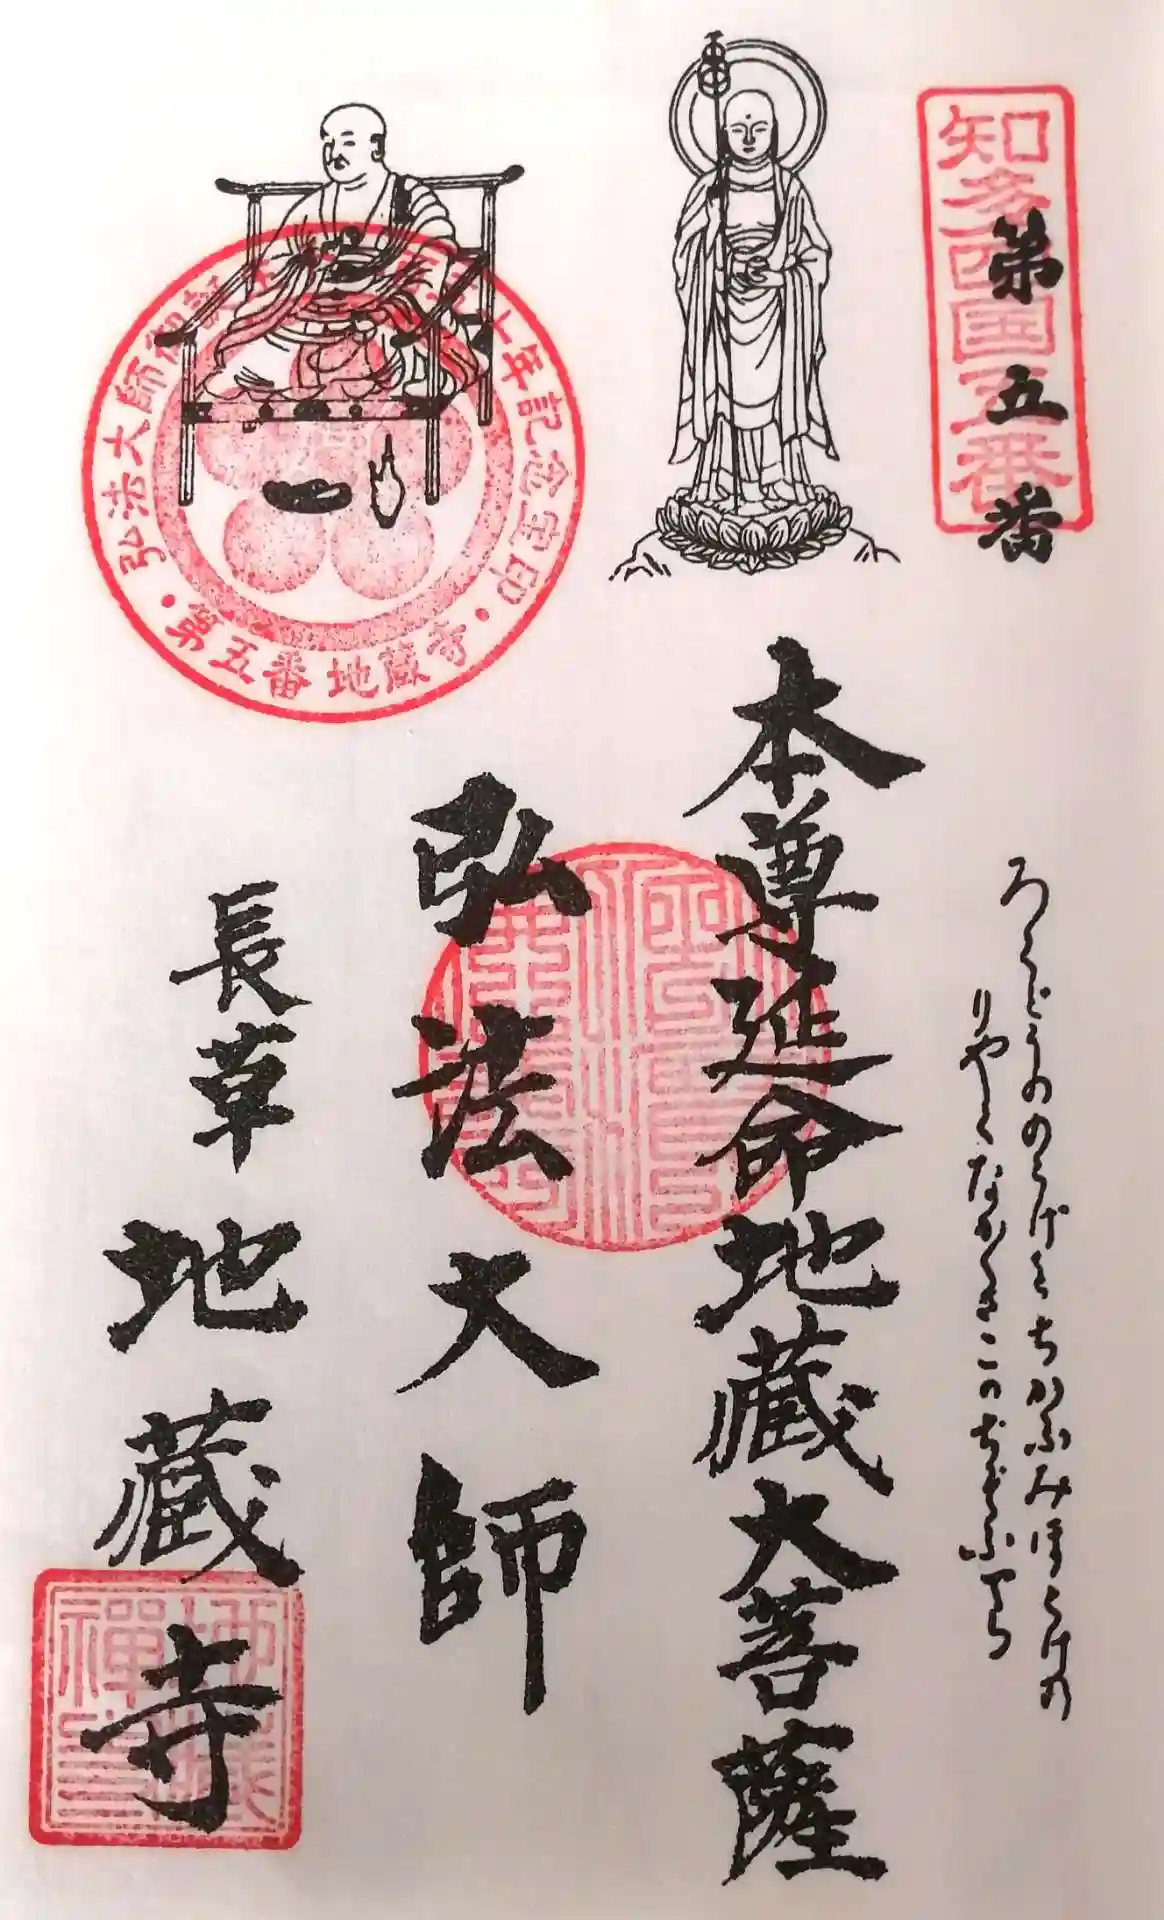 知多四国五番
第五番
ろくどうののうげをちかふみほとけの
りやくながくさこのぢぞふでら
本尊延命地蔵大菩薩
弘法大師
長草地蔵寺
年記念宝印
弘法大師御
・第五番地蔵寺・